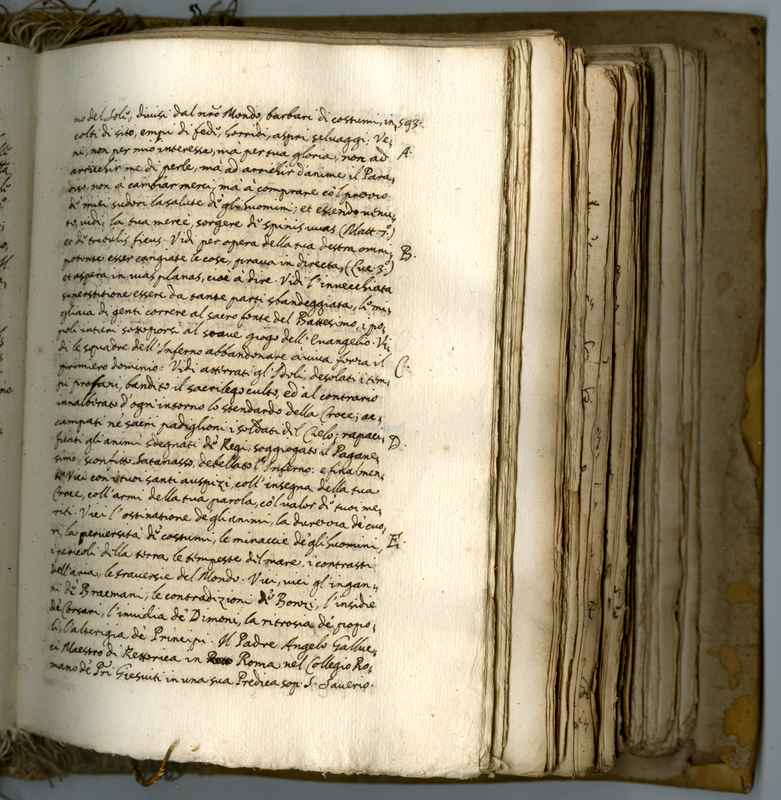 no del Sole, divisi dal nrõ Mondo, barbari di costumi, in, 593.
colti di sito, empi di fede, horridi, aspri selvaggi: Ve,
ni, non per mio interesse, mà per tua gloria, non ad A.
arrichir me di perle, mà ad arrichir d'anime il Para,
diso, non à cambiar merci, mà à comprare cò'l prezzo
de' miei sudori la salute de gli huomini; et essendo venu,
to, vidi, la tua mercè, sorgere de spinis uvas (Matt. 7.)
et de tribulis ficus. Vidi per opera della tua destra omni, B.
potente esser cangiate le cose, prava in directa, (Luc. 3.)
et aspera in vias planas, cioè à dire. Vidi l'invecchiata
superstitione essere da tante parti sbandeggiata, le mi,
gliaia di genti correre al sacro fonte del Battesimo, i po,
poli intieri sottoporsi al soave giogo dell'Evangelio. Vi,
di le squadre dell'Inferno abbandonare à viva forza il C.
primiero dominio: Vidi atterrati gl'Idoli, desolati i tem,
pii profani, bandito il sacrilego culto, ed al contrario
innalberato d'ogn'intorno lo stendardo della Croce; ac,
campati nè sacri padiglioni i soldati del Cielo; rapaci, D.
ficati gli animi sdegnati de' Regi, soggiogato il Pagane,
simo, sconfitto Satanasso, debellato l'Inferno: e finalmen,
te Vici con i tuoi santi auspizi, coll'insegna della tua
Croce, coll'armi della tua parola, cò'l valor de' tuoi me,
riti. Vici l'ostinatione de gli animi, la durezza de' cuo,
ri, la perversità de' costumi, le minaccie de gli huomini, E.
i pericoli della terra, le tempeste del mare, i contrasti
dell'aria, le traversie del Mondo. Vici, vici gl'ingan,
ni de' Bracmani, le contradizioni de' Bonzi, l'insidie
de' Corsari, l'invidia de' Dimoni, la ritrosia de' popo,
li, l'alterigia de' Principi. Il Padre Angelo Galluc,
ci Maestro di Rettorica in Roma nel Collegio Ro,
mano de' Pri Giesuiti in una sua Predica sop. S. Saverio.